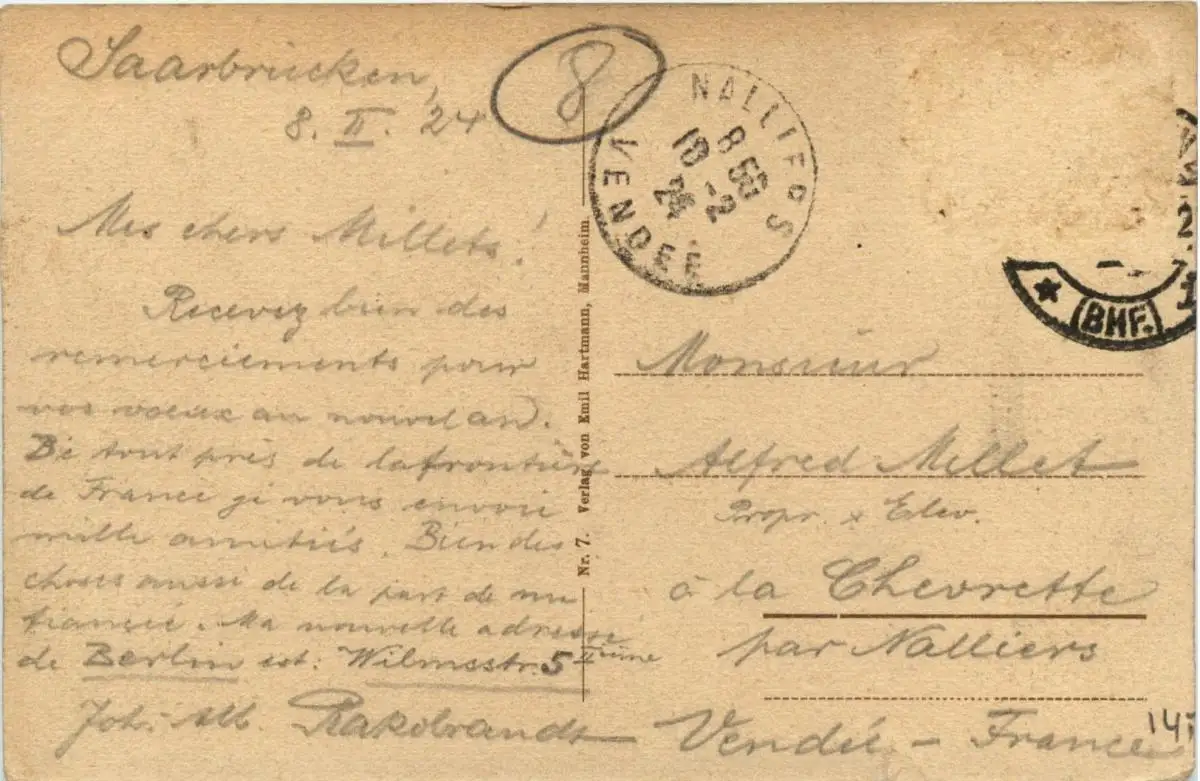 Saarbrücken,
8. II. 24
8
Mes chers Millets!
Recevez bien des
remerciements pour
vos voeux au nouvel an.
De tout près de la frontière
de France je vous envoie
mille amitiés. Bien des
choses aussi de la part de ma
fiancée. Ma nouvelle adresse
de Berlin est: Wilmsstr. 5 II ième
Joh. Alb. Rakobrandt
Nr. 7. Verlag von Emil Hartmann, Mannheim
NALLIERS
8 50
10 -2
24
VENDEE
* (BHF.)
Monsieur
Alfred Millet
Propr. & Elev.
à la Chevrette
par Nalliers
Vendée - France